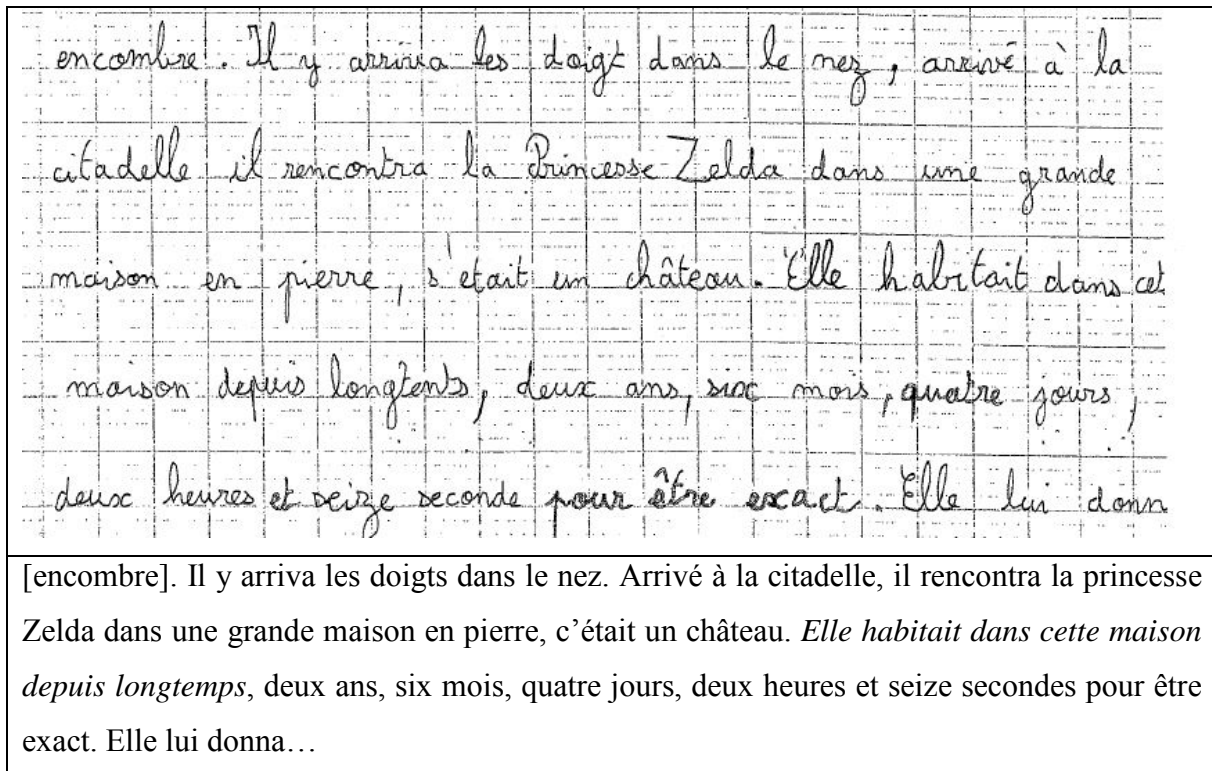 encombre. Il y arriva les doigt dans le nez, arrivé à la
citadelle il rencontra la Princesse Zelda dans une grande
maison en pierre, s'etait un château. Elle habitait dans cet
maison depuis longtents, deux ans, six mois, quatre jours,
deux heures et seize seconde pour être exact. Elle lui donn
[encombre]. Il y arriva les doigts dans le nez. Arrivé à la citadelle, il rencontra la princesse
Zelda dans une grande maison en pierre, c’était un château. Elle habitait dans cette maison
depuis longtemps, deux ans, six mois, quatre jours, deux heures et seize secondes pour être
exact. Elle lui donna…